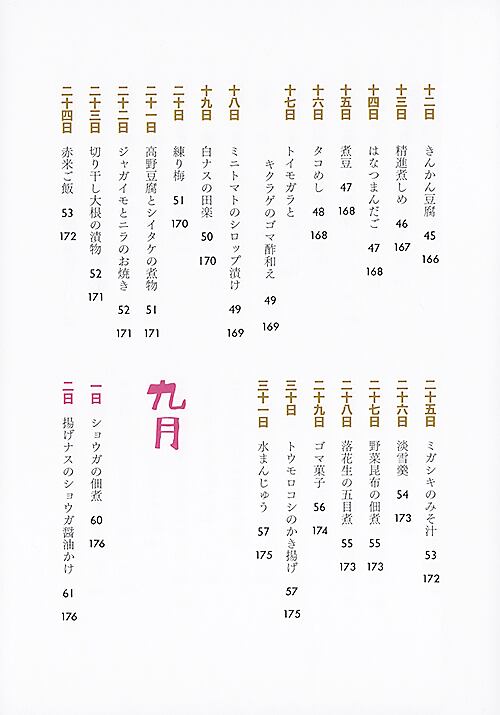 十二日 きんかん豆腐 45 166
十三日 精進煮しめ 46 167
十四日 はなつまんだご 47 168
十五日 煮豆 47 168
十六日 タコめし 48 168
十七日 トイモガラと
キクラゲのゴマ酢和え 49 169
十八日 ミニトマトのシロップ漬け 49 169
十九日 白ナスの田楽 50 170
二十日 練り梅 51 170
二十一日 高野豆腐とシイタケの煮物 51 171
二十二日 ジャガイモとニラのお焼き 52 171
二十三日 切り干し大根の漬物 52 171
二十四日 赤米ご飯 53 172
二十五日 ミガシキのみそ汁 53 172
二十六日 淡雪羹 54 173
二十七日 野菜昆布の佃煮 55 173
二十八日 落花生の五目煮 55 173
二十九日 ゴマ菓子 56 174
三十日 トウモロコシのかき揚げ 57 175
三十一日 水まんじゅう 57 175
九月
一日 ショウガの佃煮 60 176
二日 揚げナスのショウガ醤油かけ 61 176